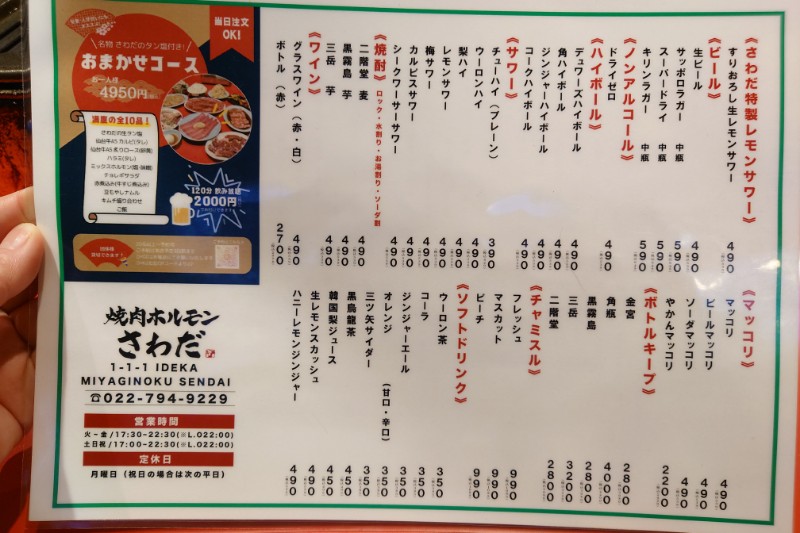 《さわだ特製レモンサワー》
すりおろし生レモンサワー 490
《ビール》
生ビール 490
サッポロラガー 中瓶 590
スーパードライ 中瓶 590
キリンラガー 中瓶 590
《ノンアルコール》
ドライゼロ 490
《ハイボール》
デュワーズハイボール 490
角ハイボール 490
ジンジャーハイボール 490
コークハイボール 490
《サワー》
チューハイ(プレーン) 390
ウーロンハイ 490
梨ハイ 490
レモンサワー 490
梅サワー 490
カルピスサワー 490
シークワーサーサワー 490
《焼酎》 ロック・水割り・お湯割り・ソーダ割
二階堂 麦 490
黒霧島 芋 490
三岳 芋 490
《ワイン》
グラスワイン(赤・白) 490
ボトル(赤) 2700
《マッコリ》
マッコリ 490
ビールマッコリ 490
ソーダマッコリ 490
やかんマッコリ 2200
《ボトルキープ》
金宮 2800
角瓶 4000
黒霧島 2800
三岳 3200
二階堂 2800
《チャミスル》
フレッシュ 990
マスカット 990
ピーチ 990
《ソフトドリンク》
ウーロン茶 350
コーラ 350
ジンジャーエール (甘口・辛口) 350
オレンジ 350
三ツ矢サイダー 350
黒烏龍茶 450
韓国梨ジュース 450
生レモンスカッシュ 490
ハニーレモンジンジャー 490
当日注文OK!
名物 さわだのタン塩付き!
おまかせコース
お一人様
4950円
満足の全10品!
さわだの生タン塩
仙台牛A5 カルビ(タレ)
ハラミ(タレ)
チョレギサラダ
豆もやしナムル
キムチ盛り合わせ
ご飯
120分 飲み放題
2000円
焼肉ホルモン
さわだ
1-1-1 IDEKA
MIYAGINOKU SENDAI
☎022-794-9229
営業時間
火-金/17:30-22:30(※L.O22:00)
土日祝/17:00-22:30(※L.O22:00)
定休日
月曜日(祝日の場合は次の平日)